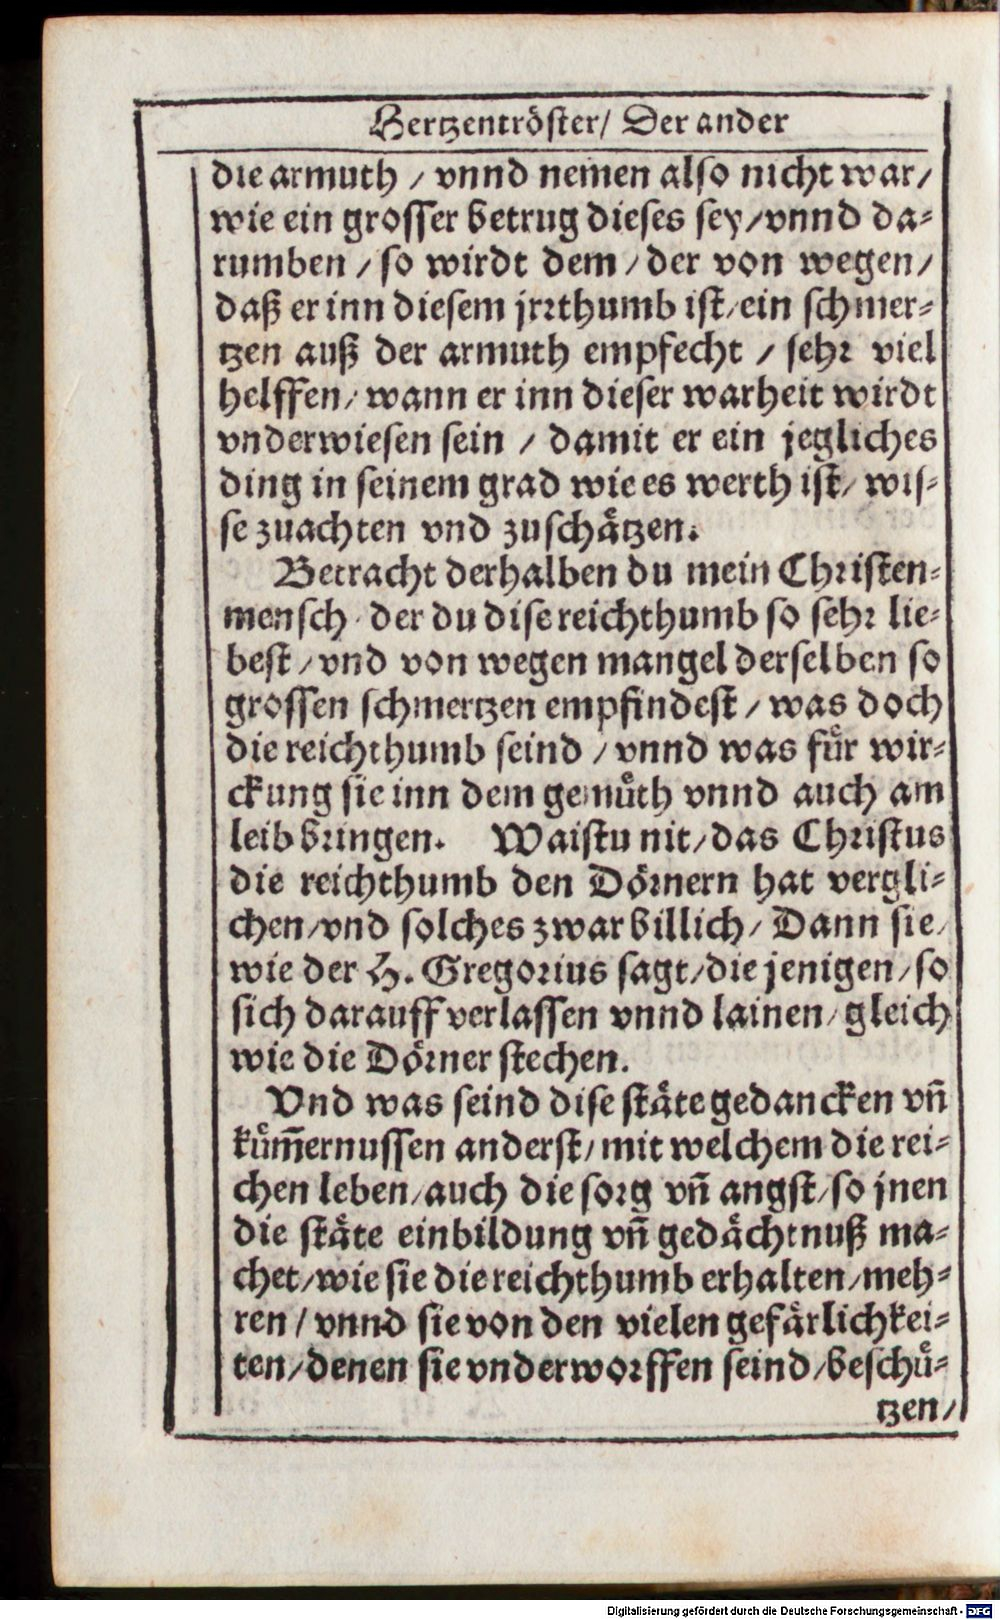 Hertzentröster/ Der ander
die armuth / vnnd nemen also nicht war/
wie ein grosser betrug dieses sey/vnnd da-
rumben / so wirdt dem / der von wegen/
daß er inn diesem jrrthumb ist/ein schmer-
tzen auß der armuth empfecht / sehr viel
helffen/ wann er inn dieser warheit wirdt
vnderwiesen sein / damit er ein jegliches
ding in seinem grad wie es werth ist/ wis-
se zuachten vnd zuschätzen.
Betracht derhalben du mein Christen-
mensch der du dise reichthumb so sehr lie-
best / vnd von wegen mangel derselben so
grossen schmertzen empfindest / was doch
die reichthumb seind / vnnd was für wir-
ckung sie inn dem gemüth vnnd auch am
leib bringen. Waistu nit/das Christus
die reichthumb den Dörnern hat vergli-
chen/vnd solches zwar billich/ Dann sie/
wie der H. Gregorius sagt/die jenigen/so
sich darauff verlassen vnnd lainen/gleich
wie die Dörner stechen.
Vnd was seind dise stäte gedancken vñ
küm̃ernussen anderst/mit welchem die rei-
chen leben/auch die sorg vñ angst/so jnen
die stäte einbildung vñ gedächtnuß ma-
chet/wie sie die reichthumb erhalten/meh-
ren / vnnd sie von den vielen gefärlichkei-
ten/denen sie vnderworffen seind/beschü-
tzen/
Digitalisierung gefördert durch die Deutsche Forschungsgemeinschaft - DFG